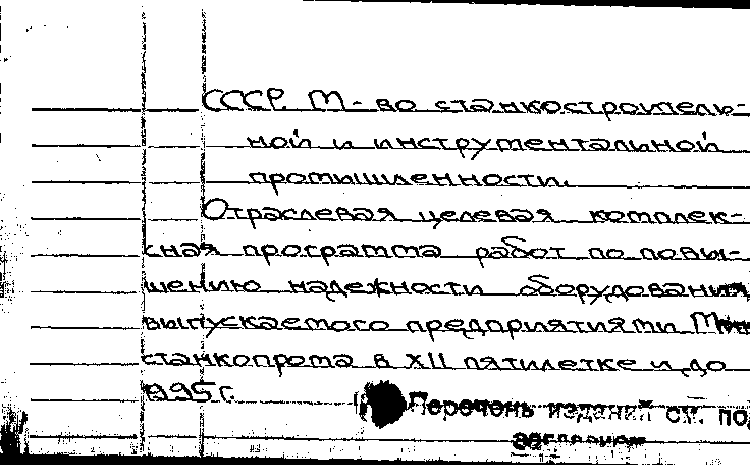 СССР. М-во станкостроитель-
ной и инструментальной
промышленности.
Отраслевая целевая комплек-
сная программа работ по повы-
шению надежности оборудования
выпускаемого предприятиями Мин
станкопрома в XII пятилетке и до
1995 г.
Перечень изданий см. под
заглавием